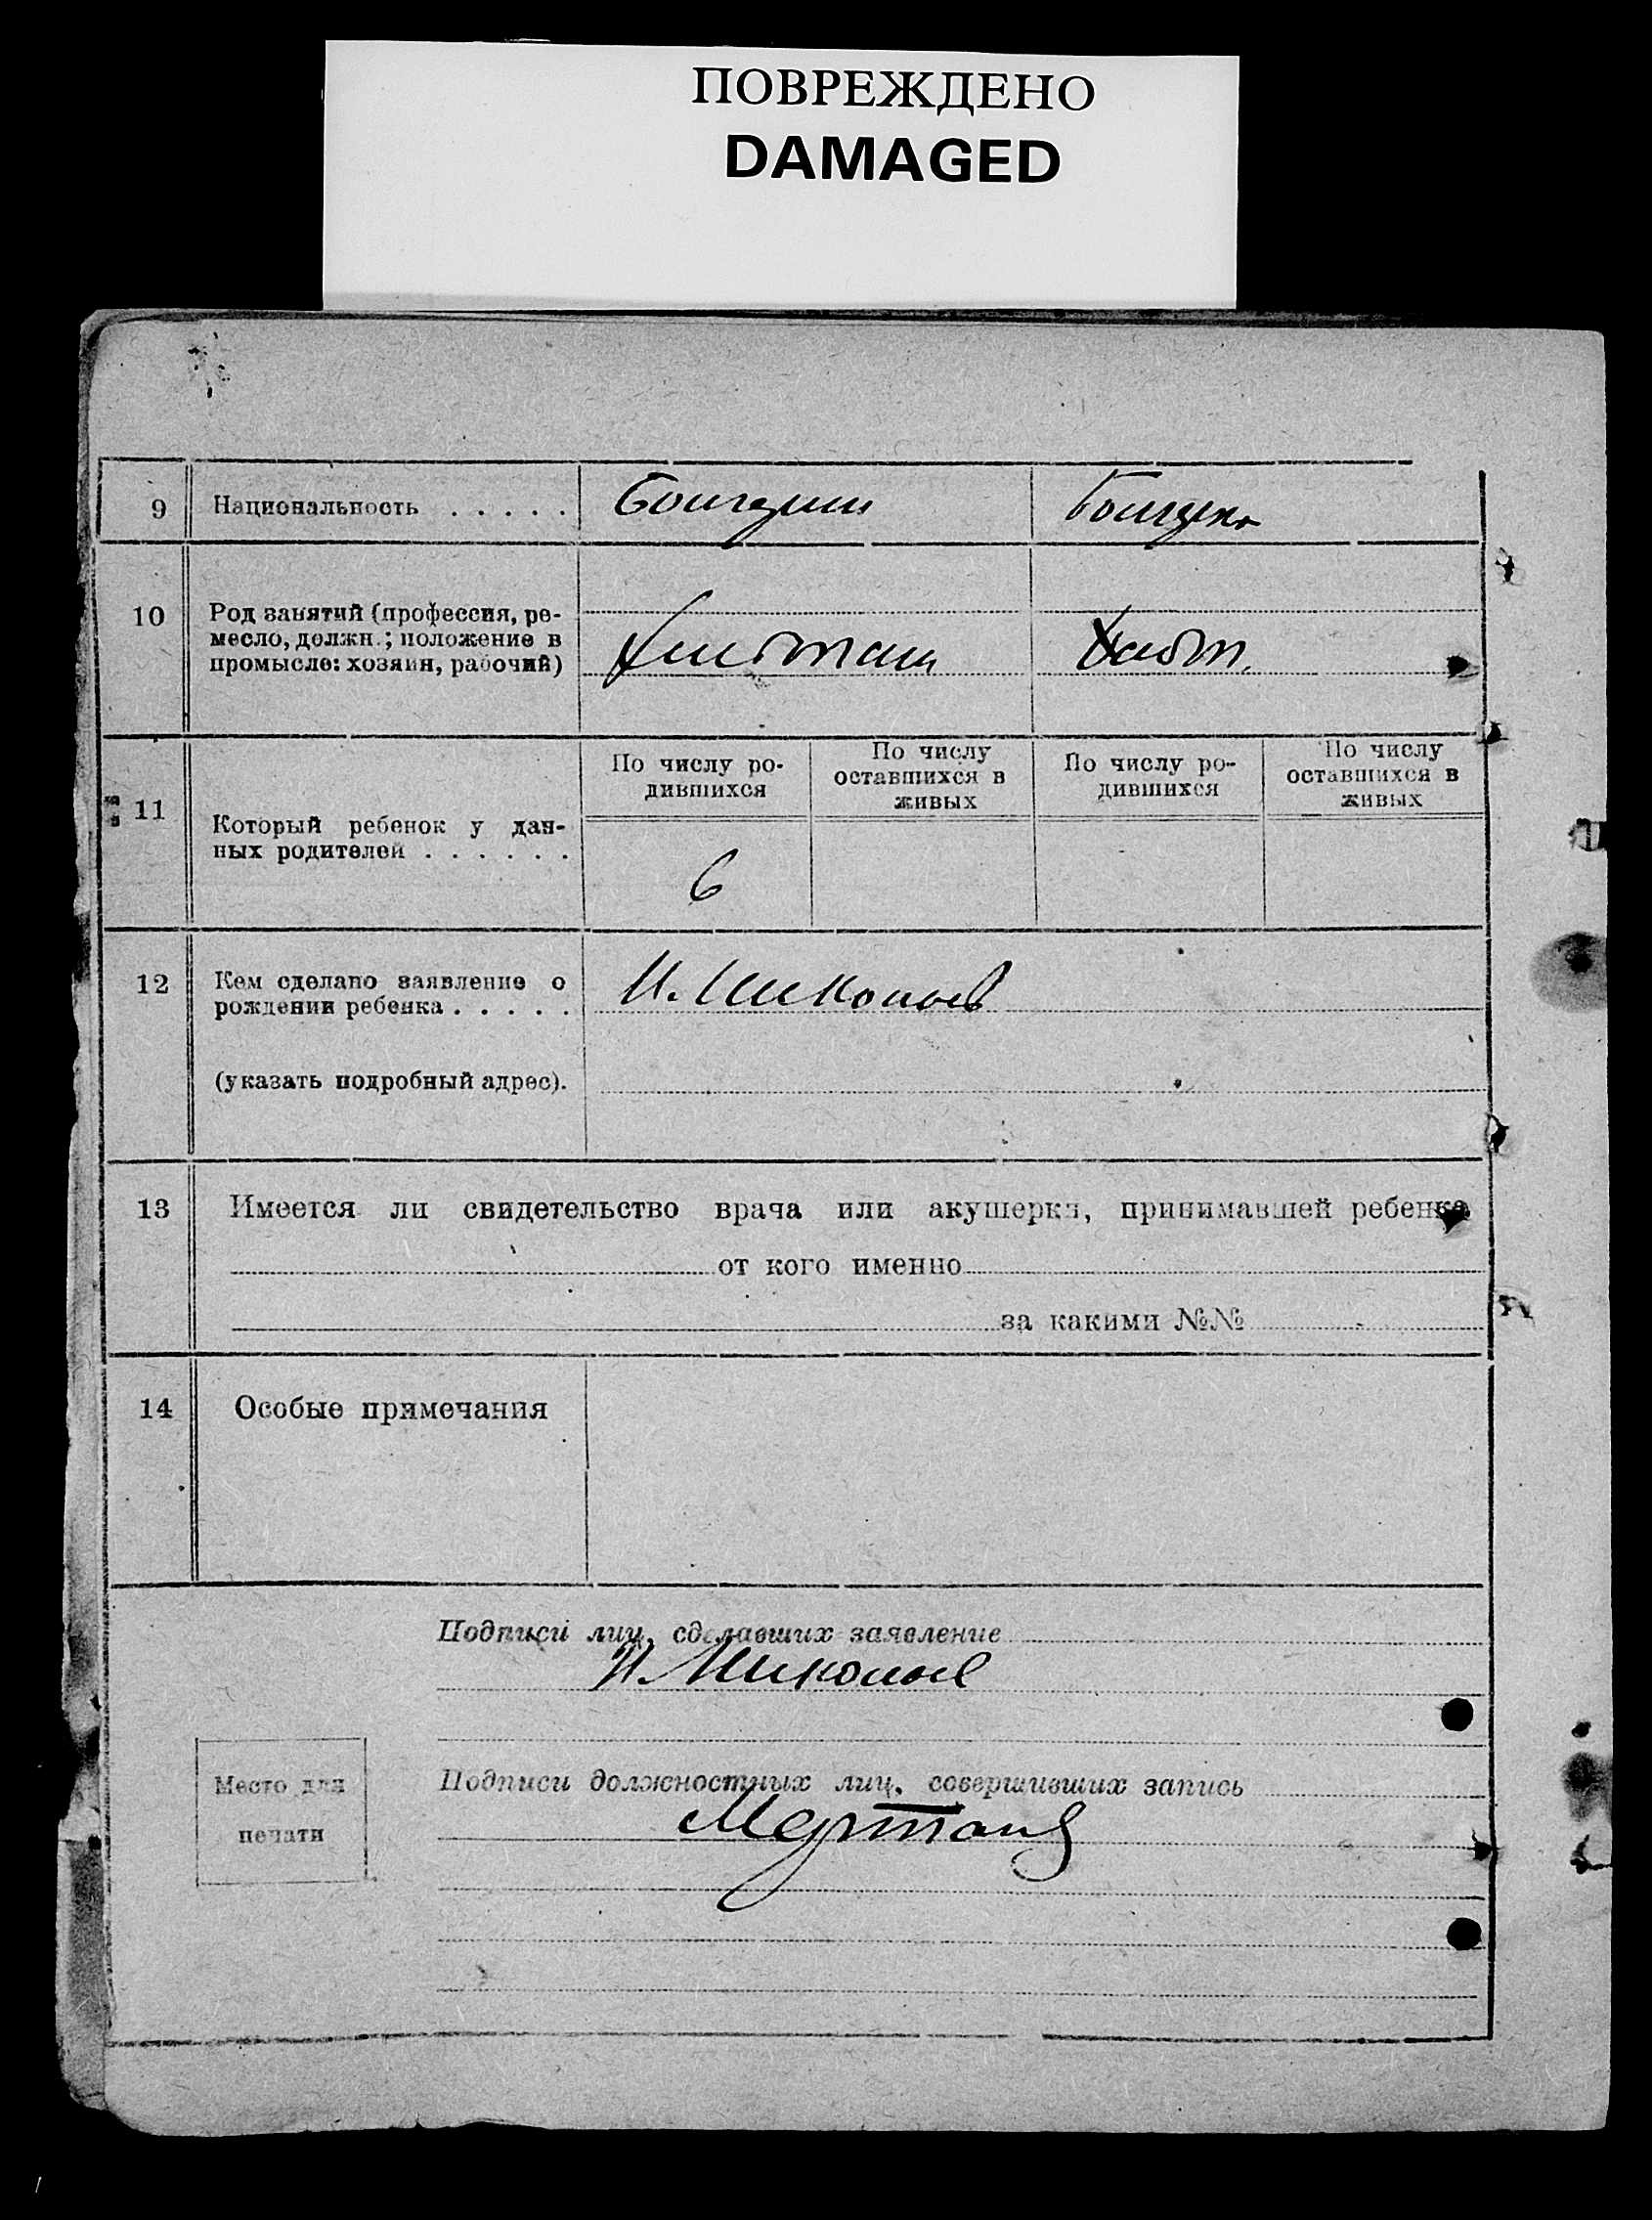 ПОВРЕЖДЕНО
DAMAGED
9 Национальность . . . . .
10 Род занятий (профессия, ре-
месло, должн.; положение в
промысле: хозяин, рабочий)
11 Который ребенок у дан-
ных родителей . . . . . .
По числу ро-
дившихся
По числу
оставшихся в
живых
По числу ро-
дившихся
По числу
оставшихся в
живых
6
12 Кем сделано заявление о
рождении ребенка . . . . .
(указать подробный адрес).
13 Имеется ли свидетельство врача или акушерки, принимавшей ребенка
от кого именно
за какими №№
14 Особые примечания
Подписи лиц, сделавших заявление
Место для
печати
Подписи должностных лиц, совершивших запись